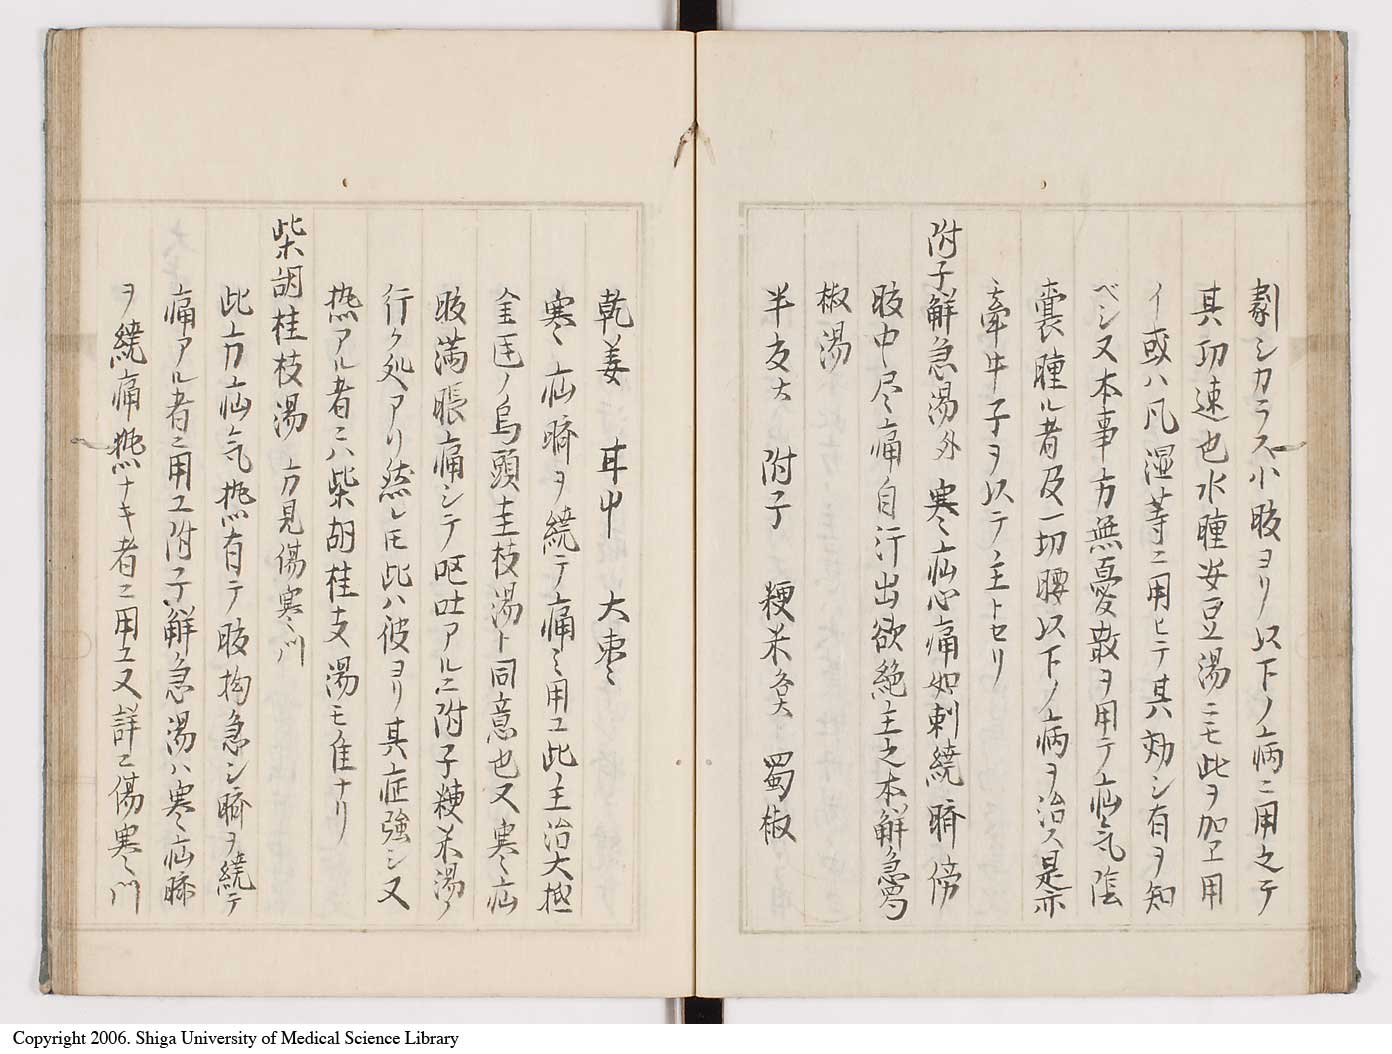 劇シカラス小腹ヨリ以下ノ病ニ用之テ
其功速也水腫赤豆湯ニモ此ヲ加エ用
イ或ハ凡湿等ニ用ヒテ其効シ有ヲ知
ベシ又本事方無憂散ヲ用テ疝気陰
嚢腫ル者及一切腰以下ノ病ヲ治ス是亦
牽牛子ヲ以テ主トセリ
附子解急湯外 寒疝心痛如刺繞臍傍
腹中尽痛自汗出欲絶主之本解急蜀
椒湯
半夏大 附子 粳米各大 蜀椒
乾姜 甘中 大棗
寒疝臍ヲ繞テ痛ニ用ユ此主治大抵
金匱ノ烏頭圭枝湯ト同意也又寒疝
腹満脹痛シテ嘔吐アルニ附子粳米湯ノ
行ク処アリ然レ𪜈此ハ彼ヨリ其症強シ又
熱アル者ニハ柴胡桂支湯モ隹ナリ
柴胡桂枝湯 方見傷寒門
此方疝気熱有テ腹拘急シ臍ヲ繞テ
痛アル者ニ用ユ附子解急湯ハ寒疝臍
ヲ繞痛熱ナキ者ニ用ユ又詳ニ傷寒門
Copyright 2006. Shiga University of Medical Science Library